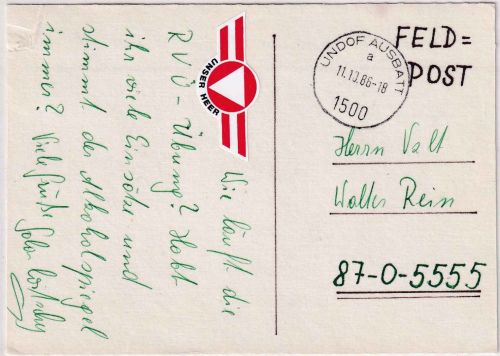 Wie läuft die
RVÖ-Übung? Habt
ihr viele Einsätze und
stimmt der Alkoholspiegel
immer? Viele Grüße
UNSER HEER
UNDOF AUSBATT
a
11.10.86-18
1500
FELD=
POST
Herrn Valt
Walter Rein
87-0-5555